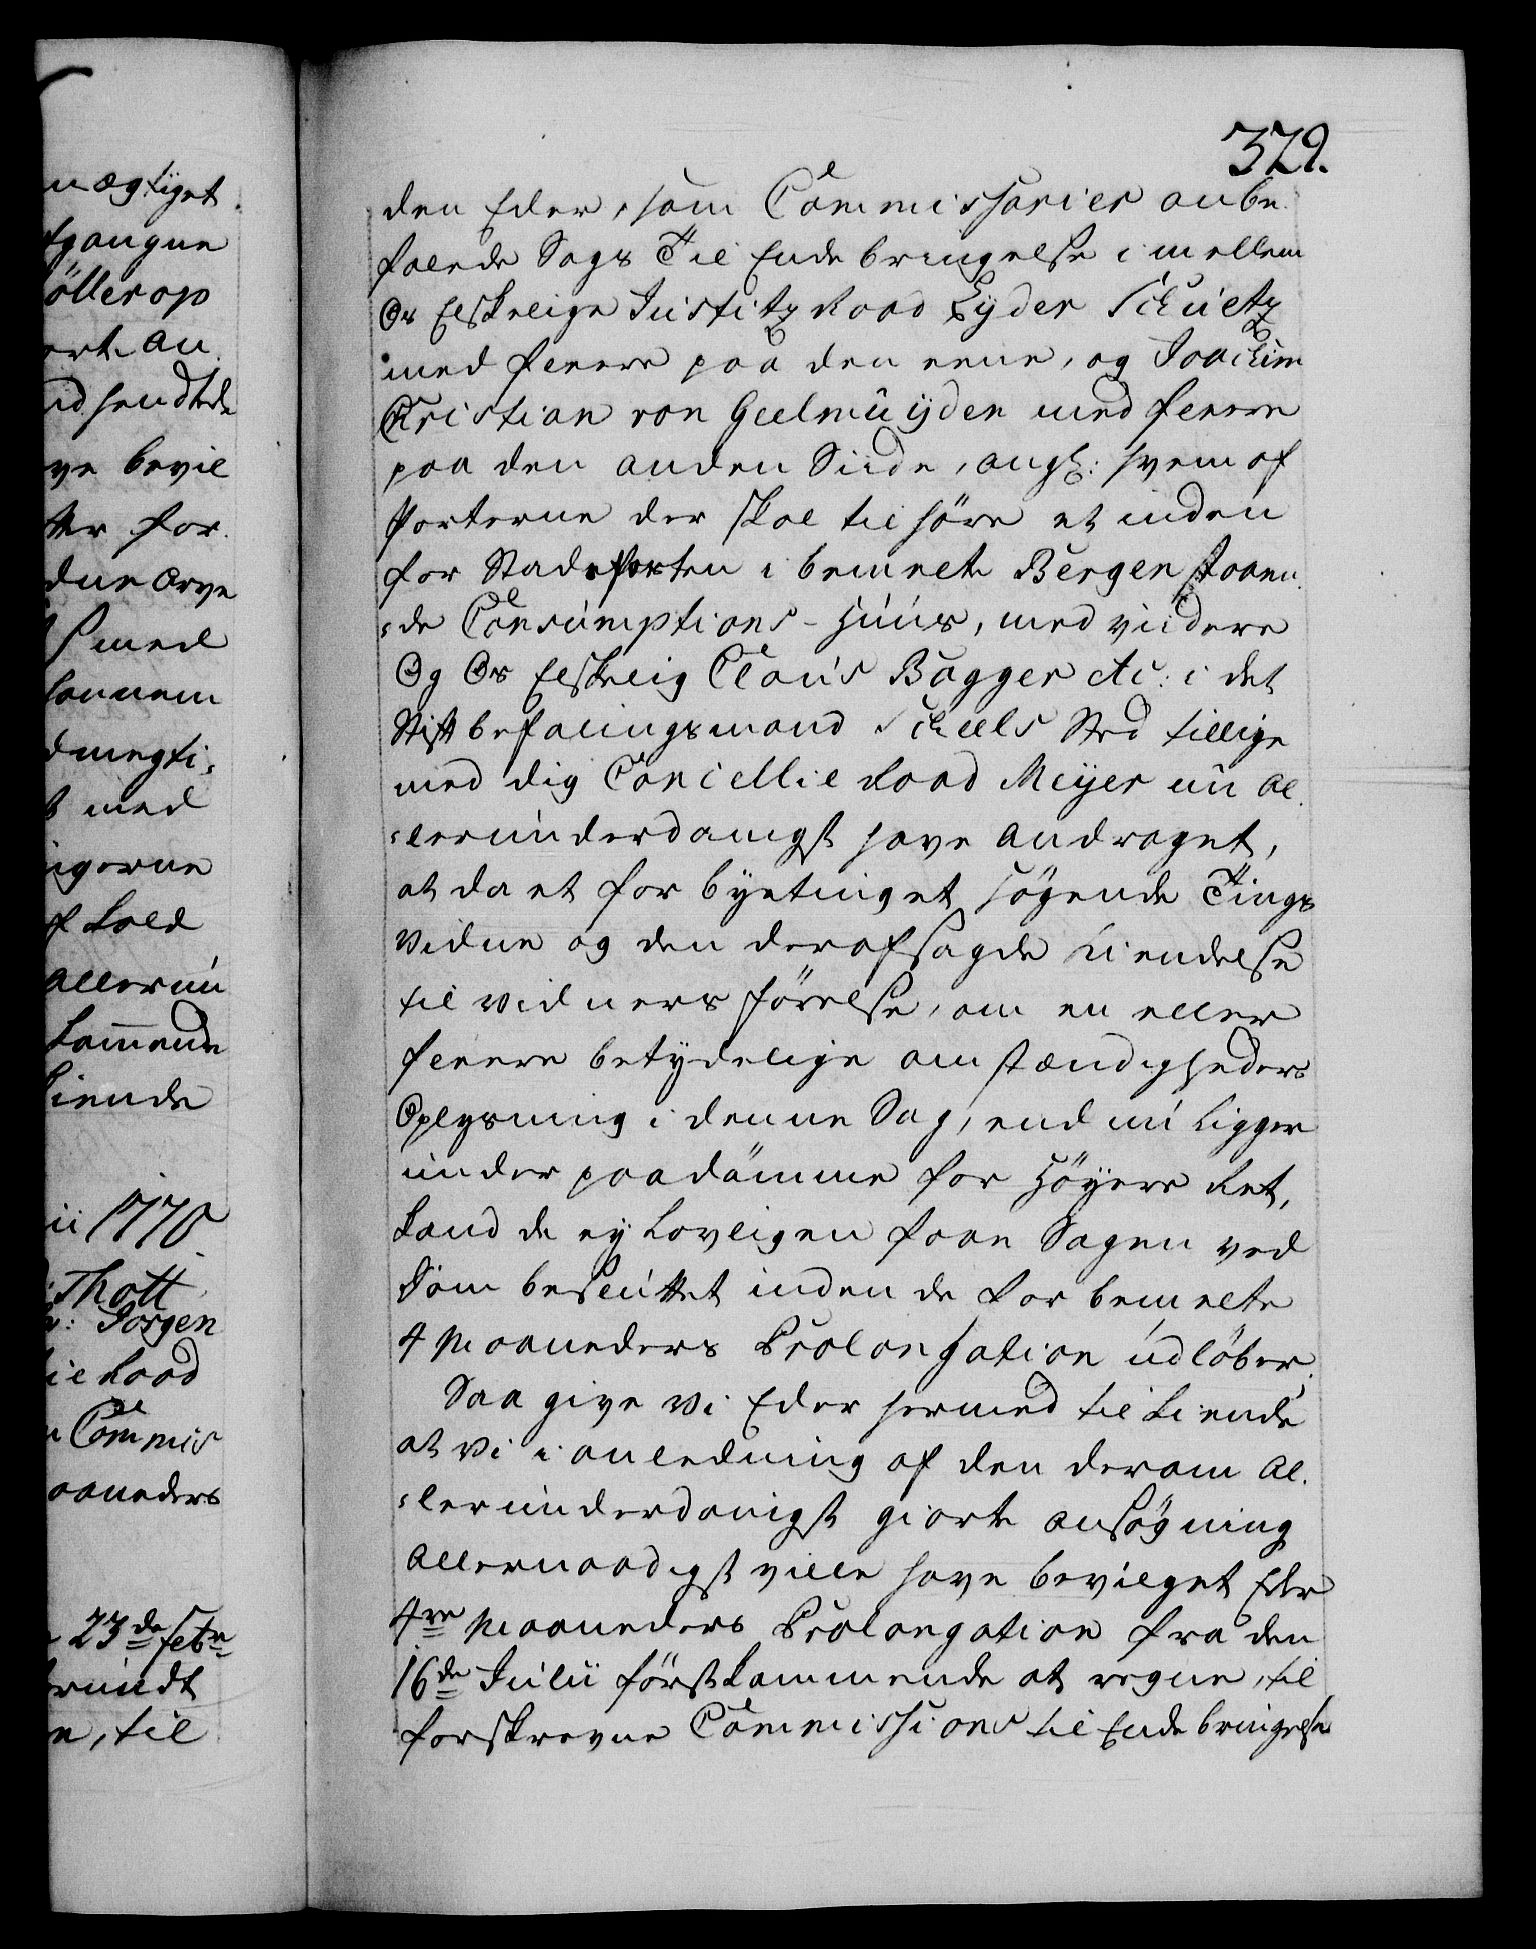 329.
den Eder, som Commissarier anbe
falede Sags Til Ende bringelse imellem
Os Elskelige Justitz Raad Eyder Schuetz
med fleere paa den eene, og Joachim
Christian von Geelmuijden med fleere
paa den anden Siide, ang: hvem af
Parterne der skal tilhöre et inden
for Stadsporten i bemelte Bergen staaen
de Consumptions-Huus, med viidere
Og Os Elskelig Claus Bagger etc: i det
Stiftbefalingsmand Scheels Sted tillige
med dig Cancellie Raad Meijer nu al
lerunderdanigst have andraget,
at da et for byetinget Högende Tings
vidne og den derafsagde Kiendelse
til vidners förelse, om en eller
fleere betydelige omstændigheders
Oplysning i denne Sag, end nu ligger
under paadömme for Höyere Ret,
kand de ey lovligen faae Sagen ved
Dom besluttet inden de for bemelte
4 Maaneders Prolongation udlöber.
Saa give Vi Eder hermed tilkiende
at Vi i anledning af den derom al
lerunderdanigst giorte ansögning
allernaadigst ville have bevilget Eder
4re Maaneders Prolongation fra den
16de Julii förstkommende at regne, til
forskrevne Commissions til Ende bringelse
mægtiget
fgangne
öllerop
orte an
idsendte
ve bevil
tter for
dne arve
med
dmegti
med
igerne
f kold
allerun
kommende
kiende
ii 1770
Thott
Jorgen
ie Raad
n Commis
aaneders
23de Febr
rundt
n, til